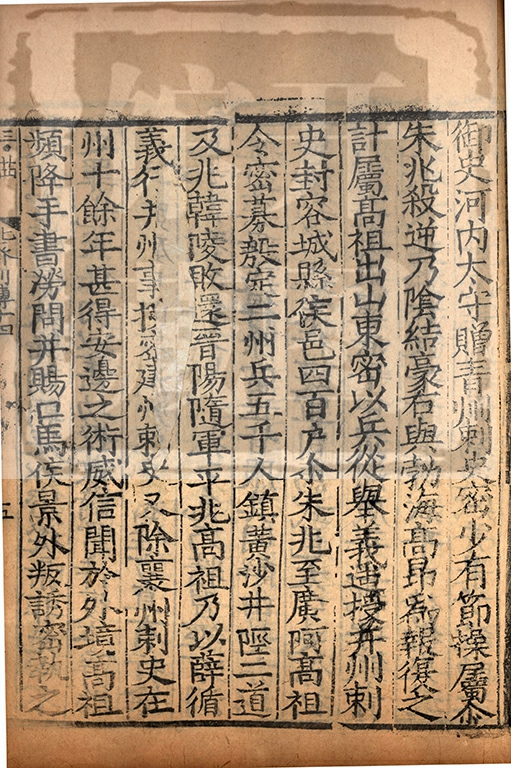 御史河内太守贈青州刺史密少有節操屬尒
朱兆殺逆乃陰結豪右與勃海高昂爲報復之
計屬高祖出山東密以兵從舉義遥授并州刺
史封容城縣侯邑四百户尒朱兆至廣阿高祖
令密募殷定二州兵五千人鎮黄沙井陘二道
及兆韓陵敗還晋陽隨軍平兆高祖乃以薛循
義行并州事授密建州刺史又除襄州刺史在
州十餘年甚得安邊之術威信聞於外境高祖
頻降手書勞問并賜口馬侯景外叛誘密執之
列傳十四
五